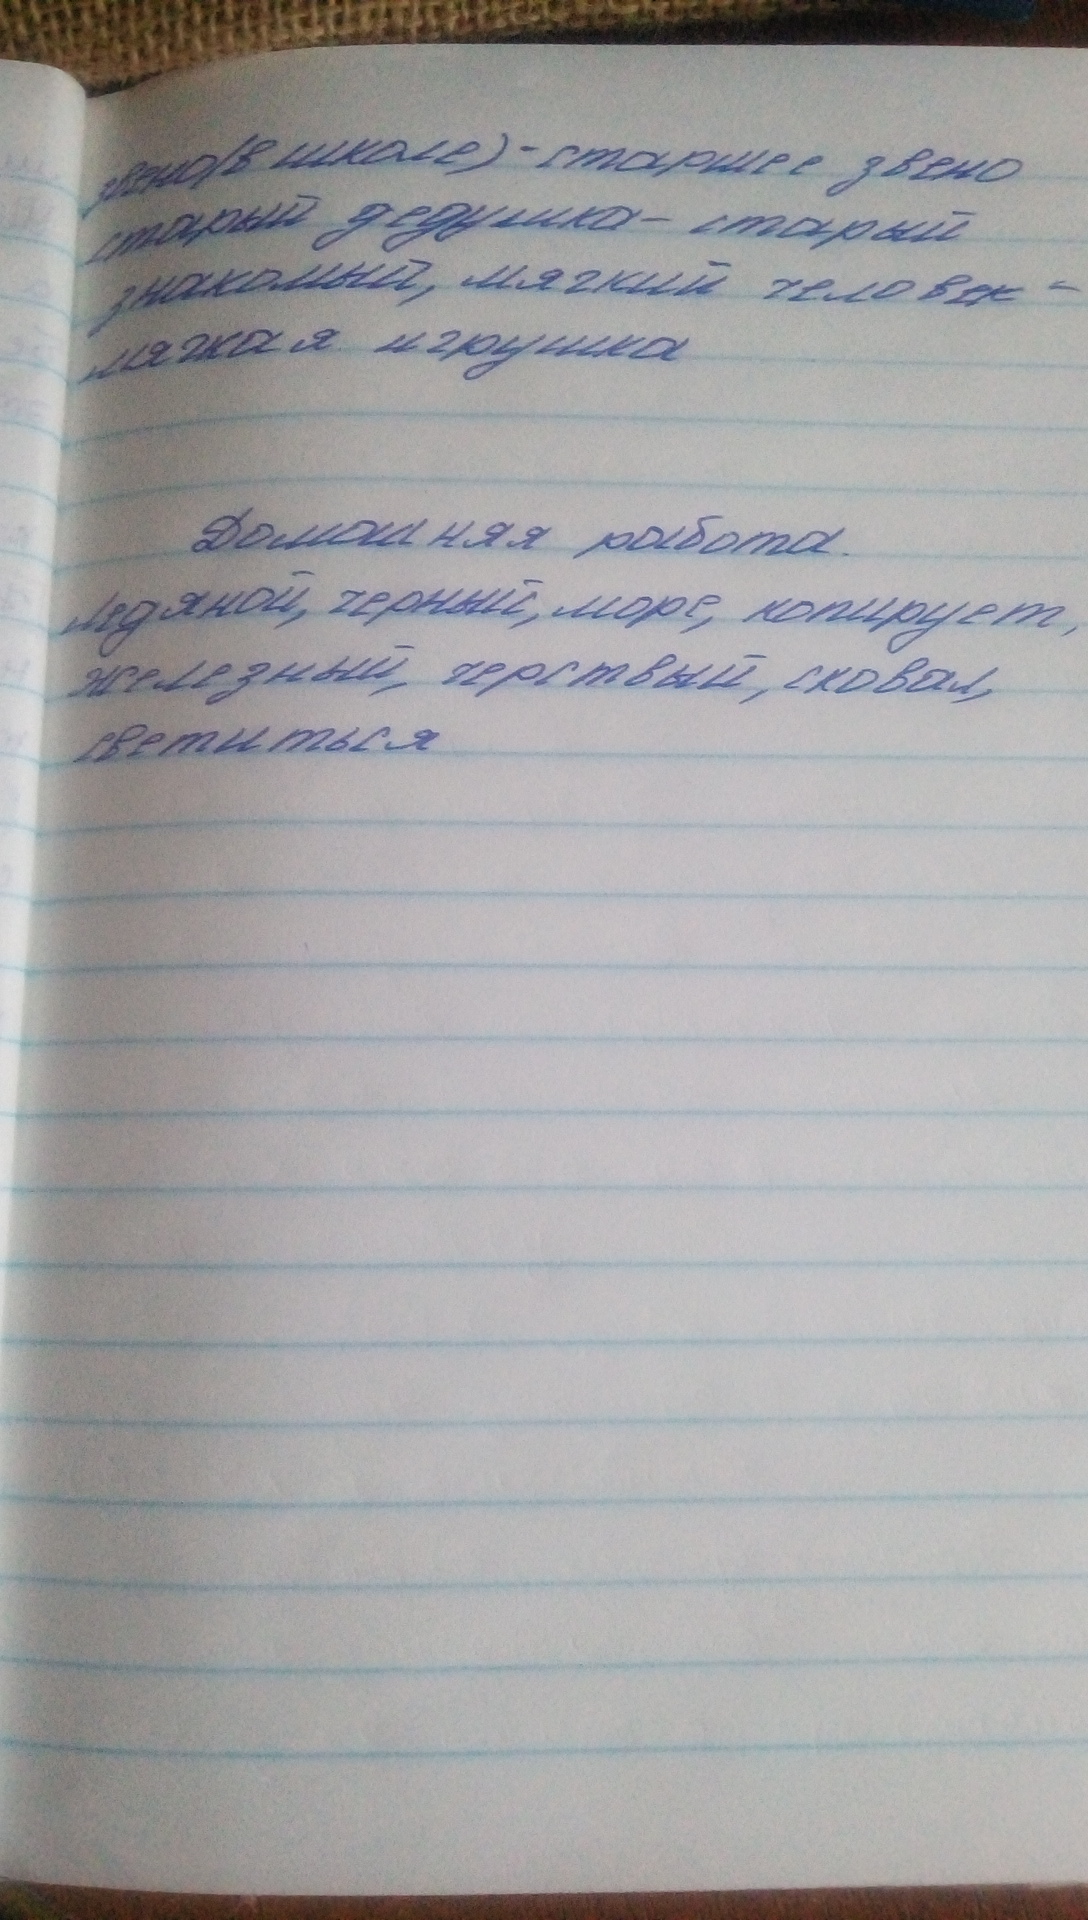 звено(в школе)-старшее звено
старый дедушка-старый
знакомый, мягкий человек-
мягкая игрушка
Домашняя работа.
Ледяной, черный, море, копирует,
железный, черствый, сковал,
светиться